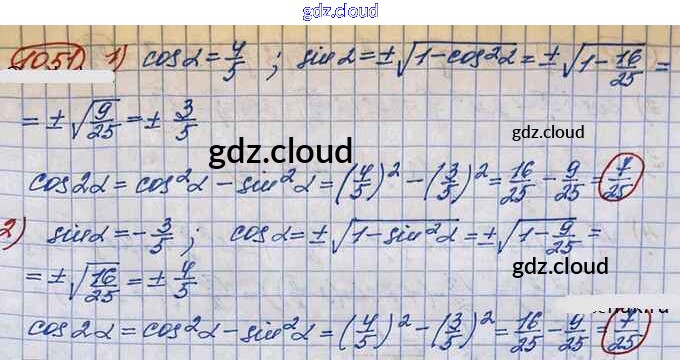 gdz.cloud
gdz.cloud
1051. 1) cosα = 4/5 ; sinα = ±√(1−cos²α) = ±√(1−16/25) =
= ±√(9/25) = ± 3/5
gdz.cloud
gdz.cloud
cos2α = cos²α − sin²α = (4/5)² − (3/5)² = 16/25 − 9/25 = 7/25
2) sinα = −3/5 ; cosα = ±√(1−sin²α) = ±√(1−9/25) =
= ±√(16/25) = ± 4/5
gdz.cloud
cos2α = cos²α − sin²α = (4/5)² − (3/5)² = 16/25 − 9/25 = 7/25